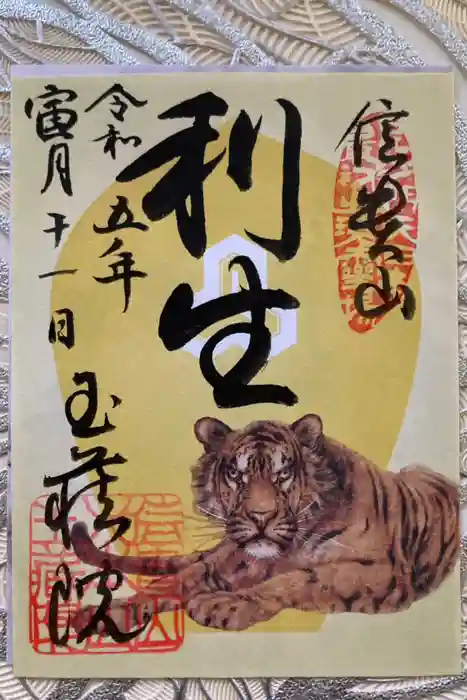 信貴山
利生
令和五年
寅月十一日
玉蔵院